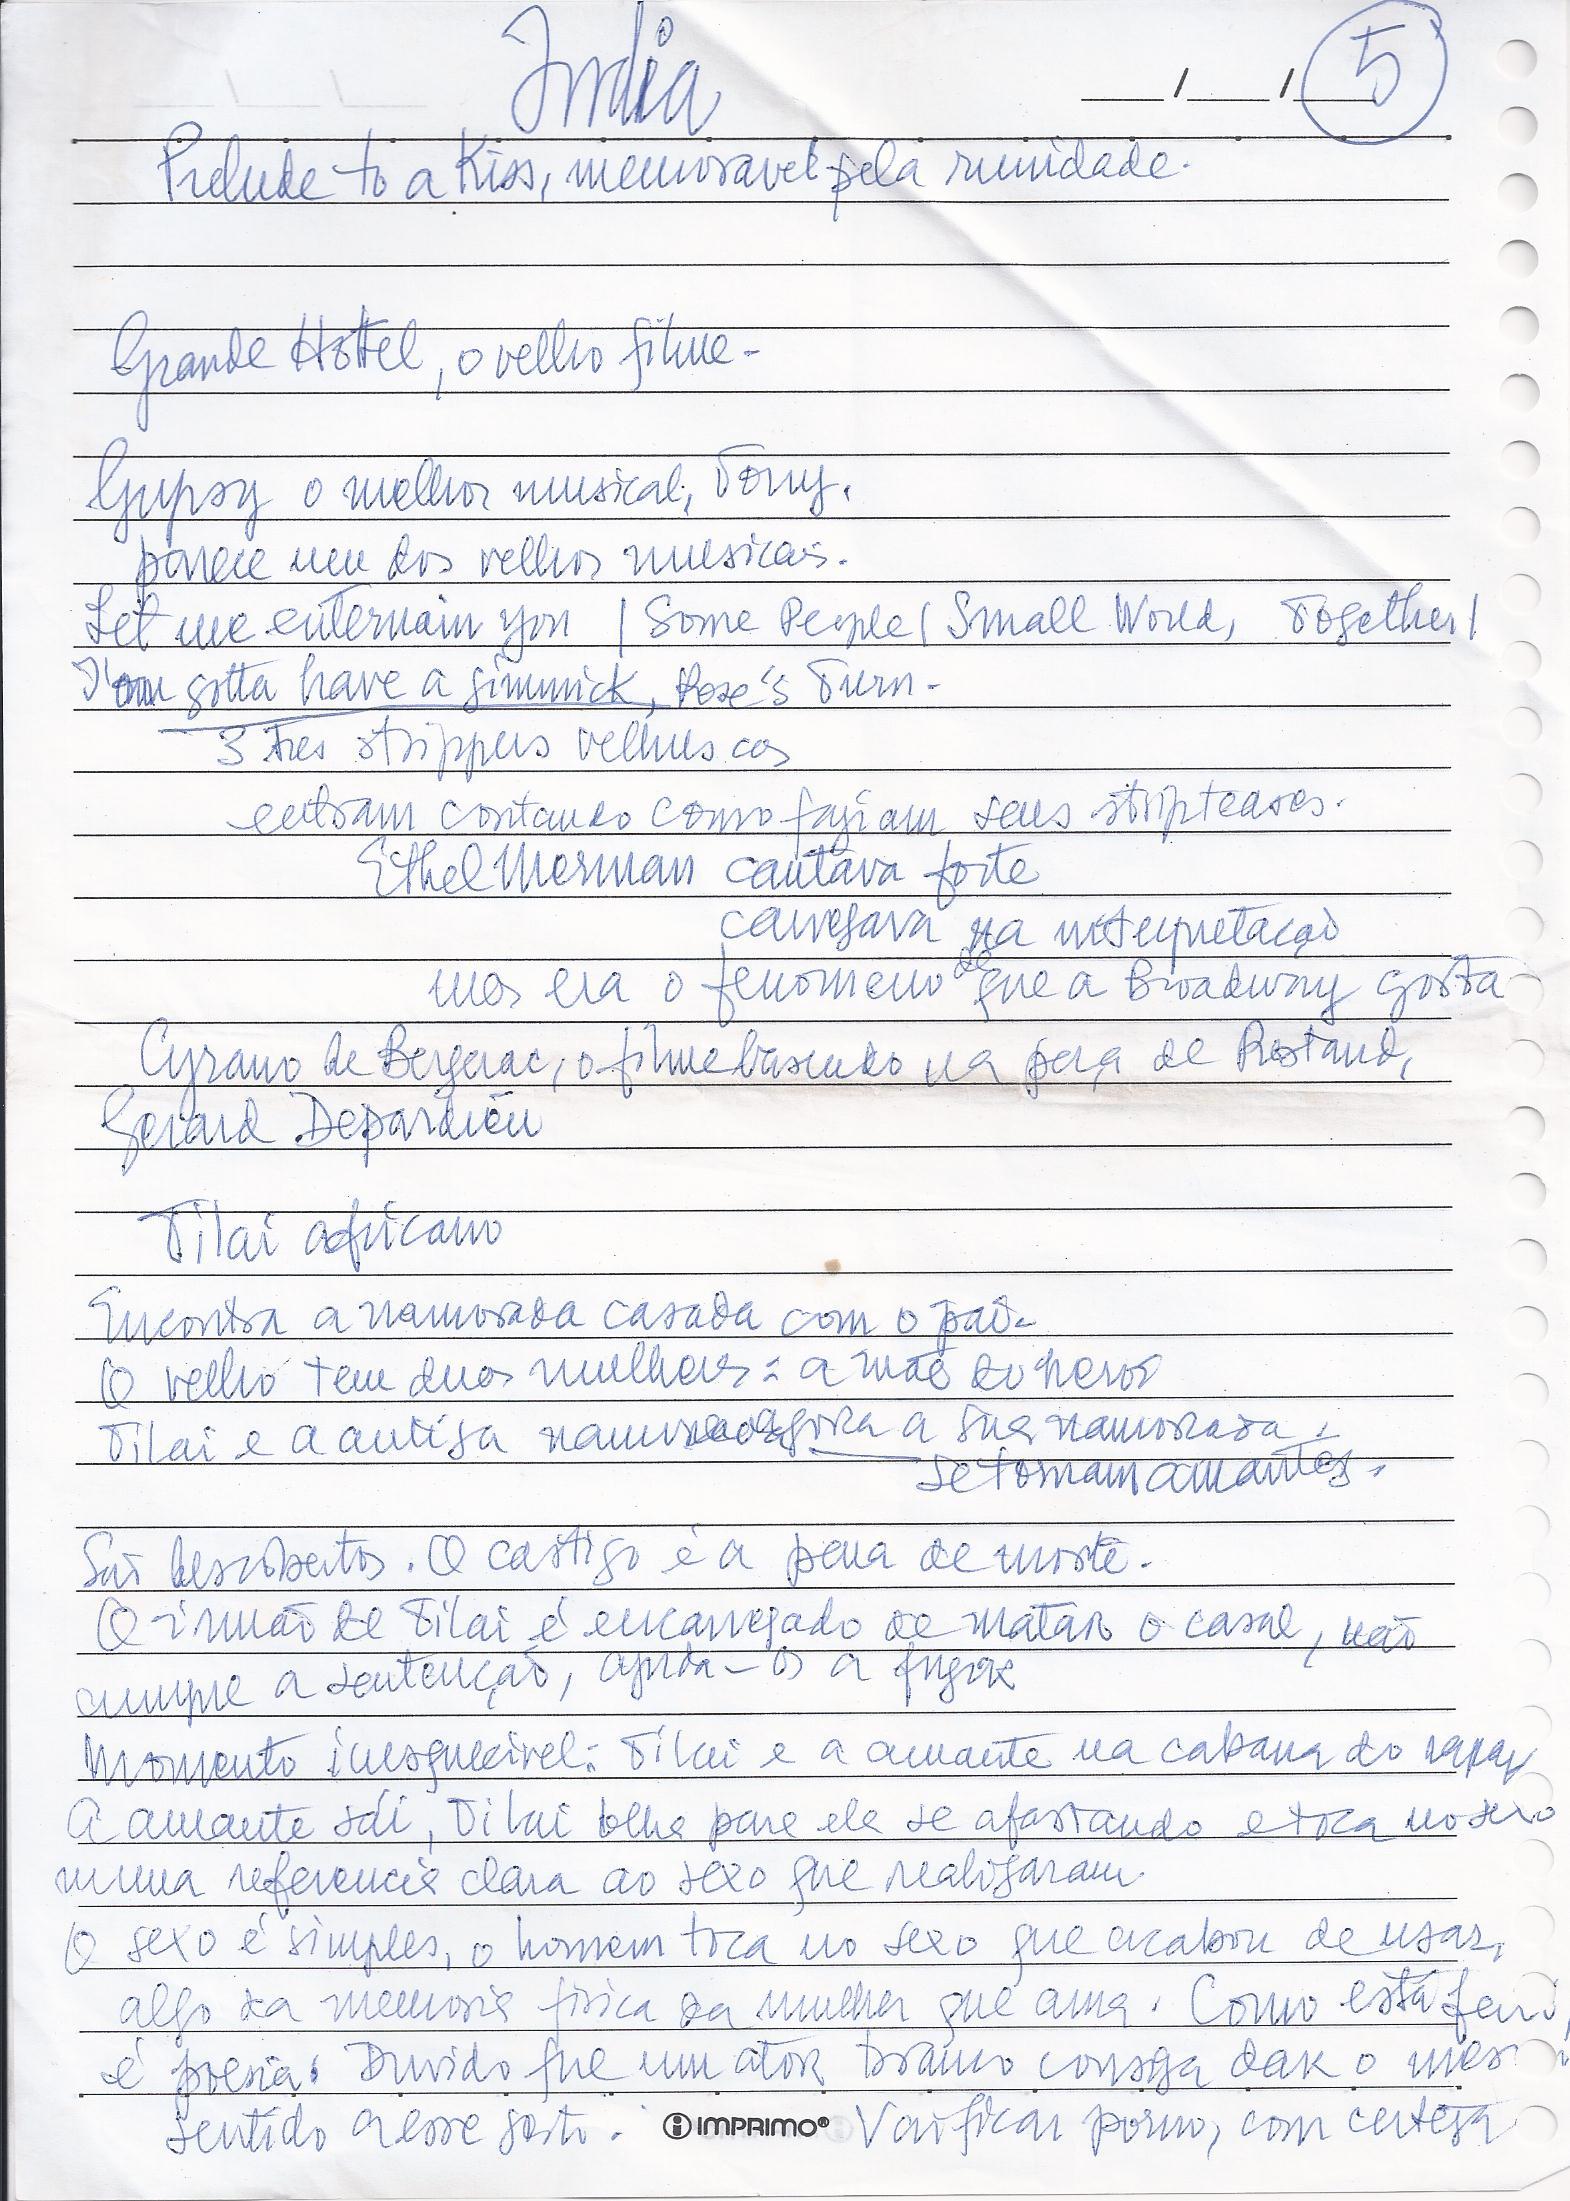 India
__/__/__ 5
Prelude to a Kiss, memoravel pela
Grande Hottel, o velho filme -
Gypsy o melhor musical, Tony.
parece um dos velhos musicais.
Let me enternain you / Some People / Small World, Together /
gotta have a gimmick, Rose's Turn -
3 tres strippers velhuscas
entram contando como faziam seus stripteases.
Ethel Merman cantava forte
carregava na interpretação
mas era o fenomeno de que a Broadway gosta
Cyrano de Bergerac, o filme baseado na peça de Rostand,
Gerard Depardieu
Tilai africano
Encontra a namorada casada com o pai -
O velho tem duas mulheres: a mãe do heroi
Tilai e a antiga agora a sua namorada.
se tornam amantes.
São descobertos. O castigo é a pena de morte.
O irmão de Tilai é encarregado de matar o casal, não
cumpre a sentenção, ajuda-os a fugir
Momento inesquecivel: Tilai e a amante na cabana do rapaz
A amante sai, Tilai olha para ela se afastando e toca no sexo
numa referencia clara ao sexo que realizaram.
O sexo é simples, o homem toca no sexo que acabou de usar,
algo da memoria fisica da mulher que ama. Como está
é poesia. Duvido que um ator branco consiga dar o
sentido a esse gesto. IMPRIMO® Vai ficar porno, com certeza